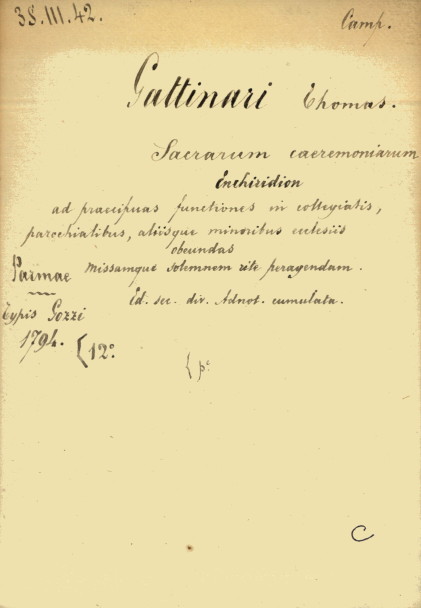 38.III.42.
Camp.
Gattinari Thomas.
Sacrarum caeremoniarum
Enchiridion
ad praecipuas functiones in collegiatis,
parochialibus, aliisque minoribus ecclesiis
obeundas
Missamque solemnem rite peragendam.
Ed. sec. div. Adnot. cumulata.
Parmae
Typis Gozzi
1794.
{12°
C